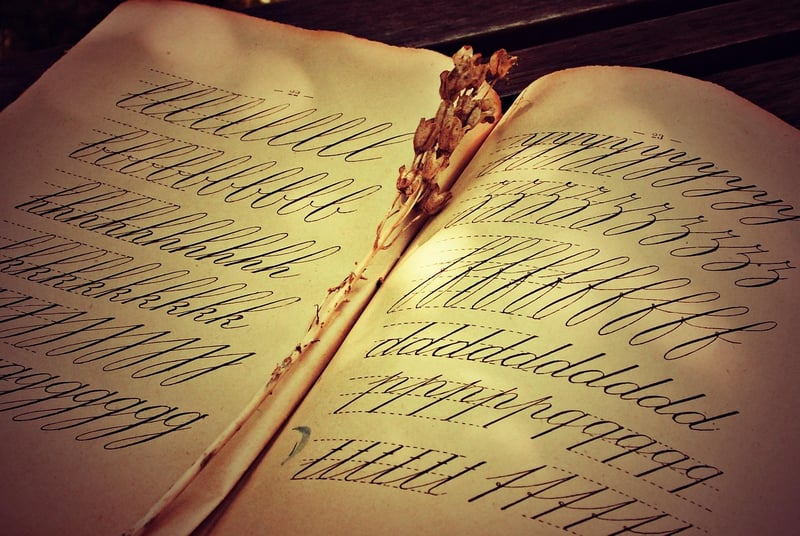 22
llllllllllll
bbbbbbbbbb
hhhhhhhhhhhh
kkkkkkkkkk
ggggggggg
23
yyyyyyyyyyyy
zzzzzzzzzz
ffffffffffff
ddddddddddddd
pppppp qqqqqq
ttttttt